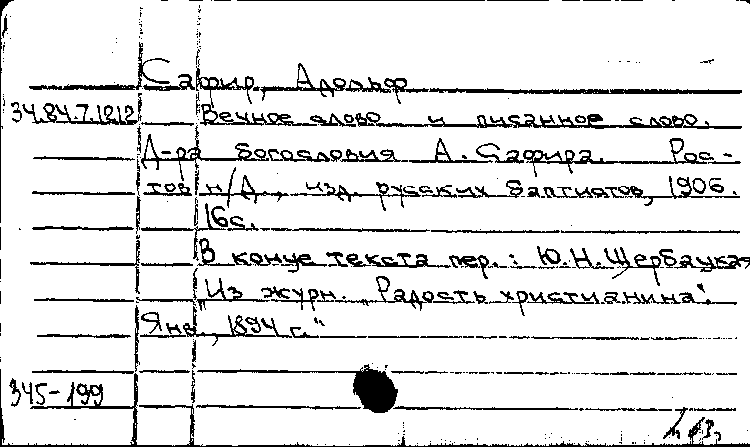 Сафир, Адольф
34.84.7.1212 Вечное слово и писанное слово.
Д-ра богословия А. Сафира. Рос-
тов н/Д., изд. русских баптистов, 1906.
16с.
В конце текста пер.: Ю.Н.Щербацкая
"Из журн. "Радость христианина".
Янв., 1894 г."
345-199